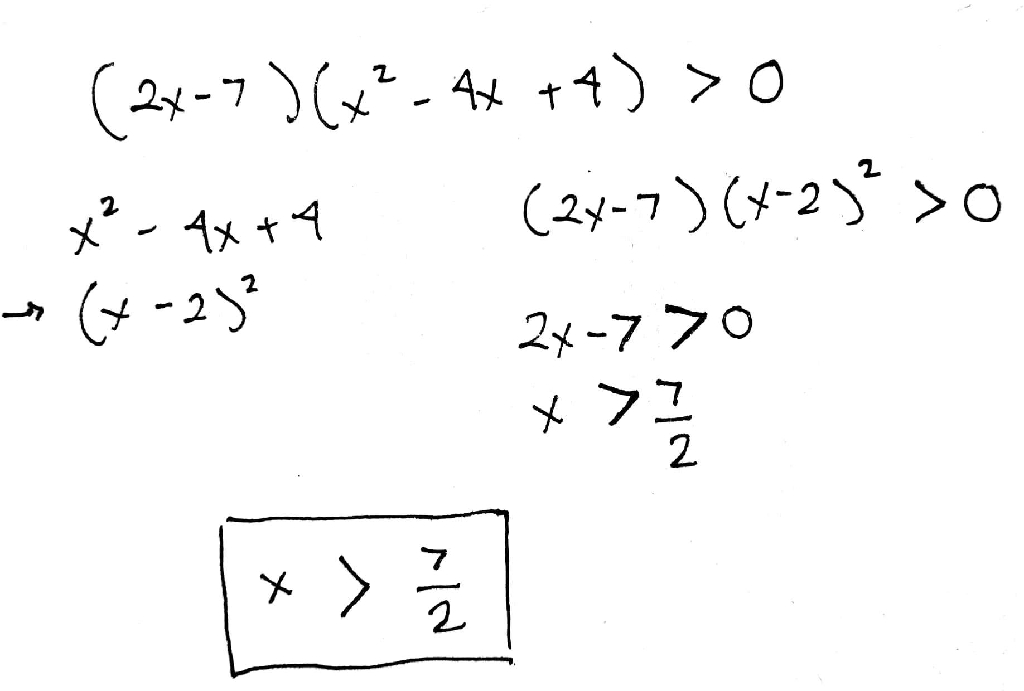 (2x-7)(x² - 4x + 4) > 0
x² - 4x + 4
→ (x - 2)²
(2x-7)(x-2)² > 0
2x-7 > 0
x > 7/2
x > 7/2